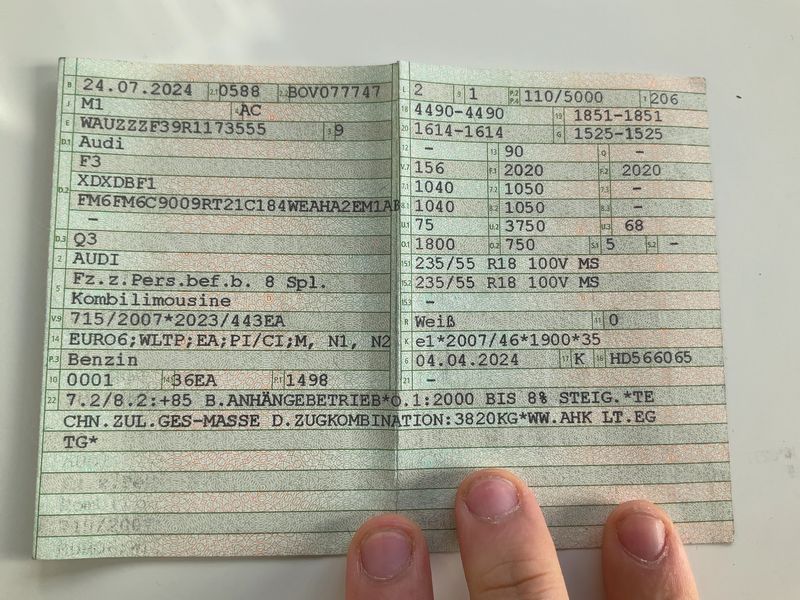 B 24.07.2024 2.1 0588 2.2 BOV077747 L 2 9 1 P.2 P.4 110/5000 T 206
J M1 4 AC 18 4490-4490 19 1851-1851
E WAUZZZF39R1173555 3 9 20 1614-1614 G 1525-1525
D.1 Audi 12 - 13 90 Q -
F3 V.7 156 F.1 2020 F.2 2020
D.2 XDXDBF1 7.1 1040 7.2 1050 7.3 -
FM6FM6C9009RT21C184WEAHA2EM1AB 8.1 1040 8.2 1050 8.3 -
- U.1 75 U.2 3750 U.3 68
D.3 Q3 O.1 1800 O.2 750 S.1 5 S.2 -
2 AUDI 15.1 235/55 R18 100V MS
5 Fz.z.Pers.bef.b. 8 Spl. 15.2 235/55 R18 100V MS
Kombilimousine 15.3 -
V.9 715/2007*2023/443EA R Weiß 11 0
14 EURO6;WLTP;EA;PI/CI;M, N1, N2 K e1*2007/46*1900*35
P.3 Benzin 6 04.04.2024 17 K 16 HD566065
10 0001 14.1 36EA P.1 1498 21 -
22 7.2/8.2:+85 B.ANHÄNGEBETRIEB*O.1:2000 BIS 8% STEIG.*TE
CHN.ZUL.GES-MASSE D.ZUGKOMBINATION:3820KG*WW.AHK LT.EG
TG*